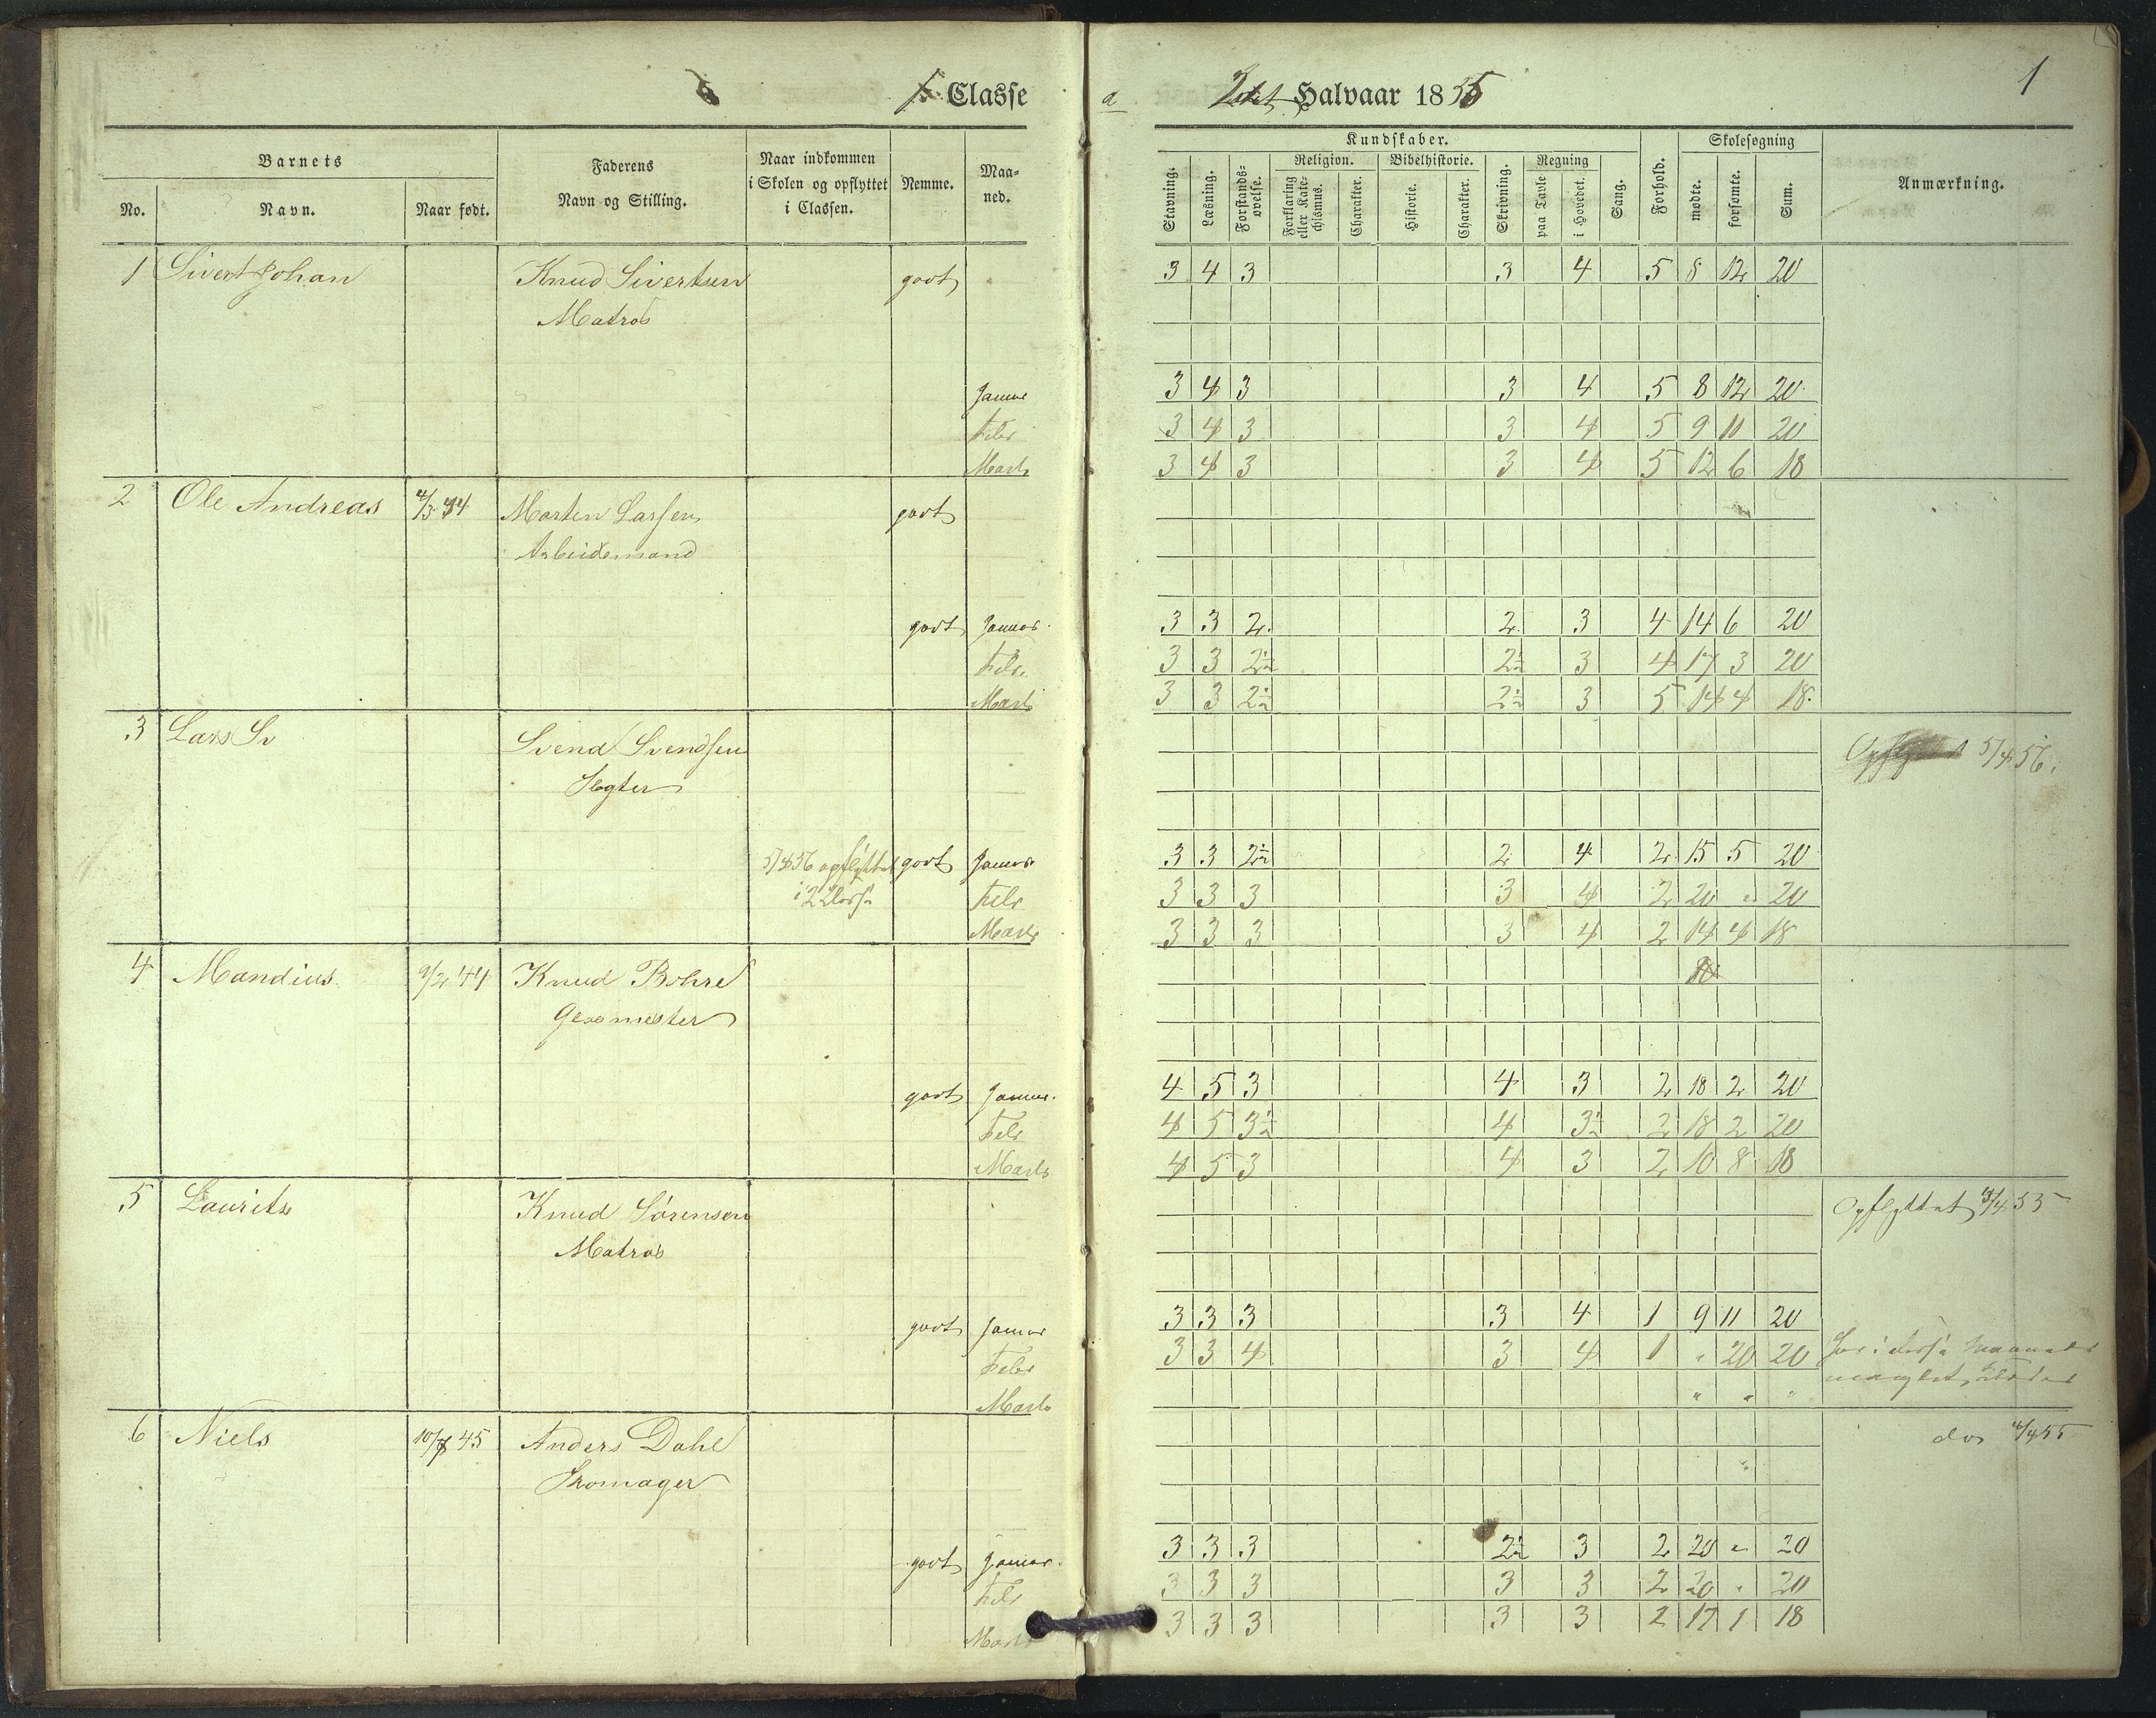 1 Classe
a 2det Halvaar 1855
1
Barnets
No. Navn. Naar født.
Faderens
Navn og Stilling.
Naar indkommen
i Skolen og opflyttet
i Classen.
Nemme.
Maa-
ned.
Kundskaber.
Stavning. Læsning. Forstands-
øvelse.
Religion.
Forklaring
eller Kate-
chismus. Charakter.
Bibelhistorie.
Historie. Charakter.
Skrivning.
Regning
paa Tavle i Hovedet.
Sang. Forhold.
Skolesøgning
mødte. forsømte. Sum.
Anmærkning.
1 Sivert Johan Knud Sivertsen godt 3 4 3 3 4 5 8 12 20
Matros
Januar 3 4 3 3 4 5 8 12 20
Febr 3 4 3 3 4 5 9 11 20
Marts 3 4 3 3 4 5 12 6 18
2 Ole Andreas 4/3 44 Morten Larsen godt
Arbeidsmand
godt Januar 3 3 2 2 3 4 14 6 20
Febr. 3 3 2½ 2½ 3 4 17 3 20
Marts 3 3 2½ 2½ 3 5 14 4 18
3 Lars Sv Svend Svendsen 5/4 56.
Slegter
5/4 56 opflyttet godt Januar 3 3 2½ 2 4 2 15 5 20
i 2 Classe Febr 3 3 3 3 4 2 20 " 20
Marts 3 3 3 3 4 2 14 4 18
4 Mandius 9/2 44 Knud Bohre
Garomester
godt Januar 4 5 3 4 3 2 18 2 20
Febr 4 5 3½ 4 3½ 2 18 2 20
Marts 4 5 3 4 3 2 10 8 18
5 Lauritz Knud Sørensen Opflyttet 4/4 55
Matros
godt Januar 3 3 3 3 4 1 9 11 20
Febr 3 3 4 3 4 1 " 20 20 har i disse Maaneder
Marts " " " manglet Klæder
6 Niels 10/7 45 Anders Dahl do 4/4 55
Skomager
godt Januar 3 3 3 2½ 3 2 20 " 20
Febr 3 3 3 3 3 2 20 " 20
Marts 3 3 3 3 3 2 17 1 18